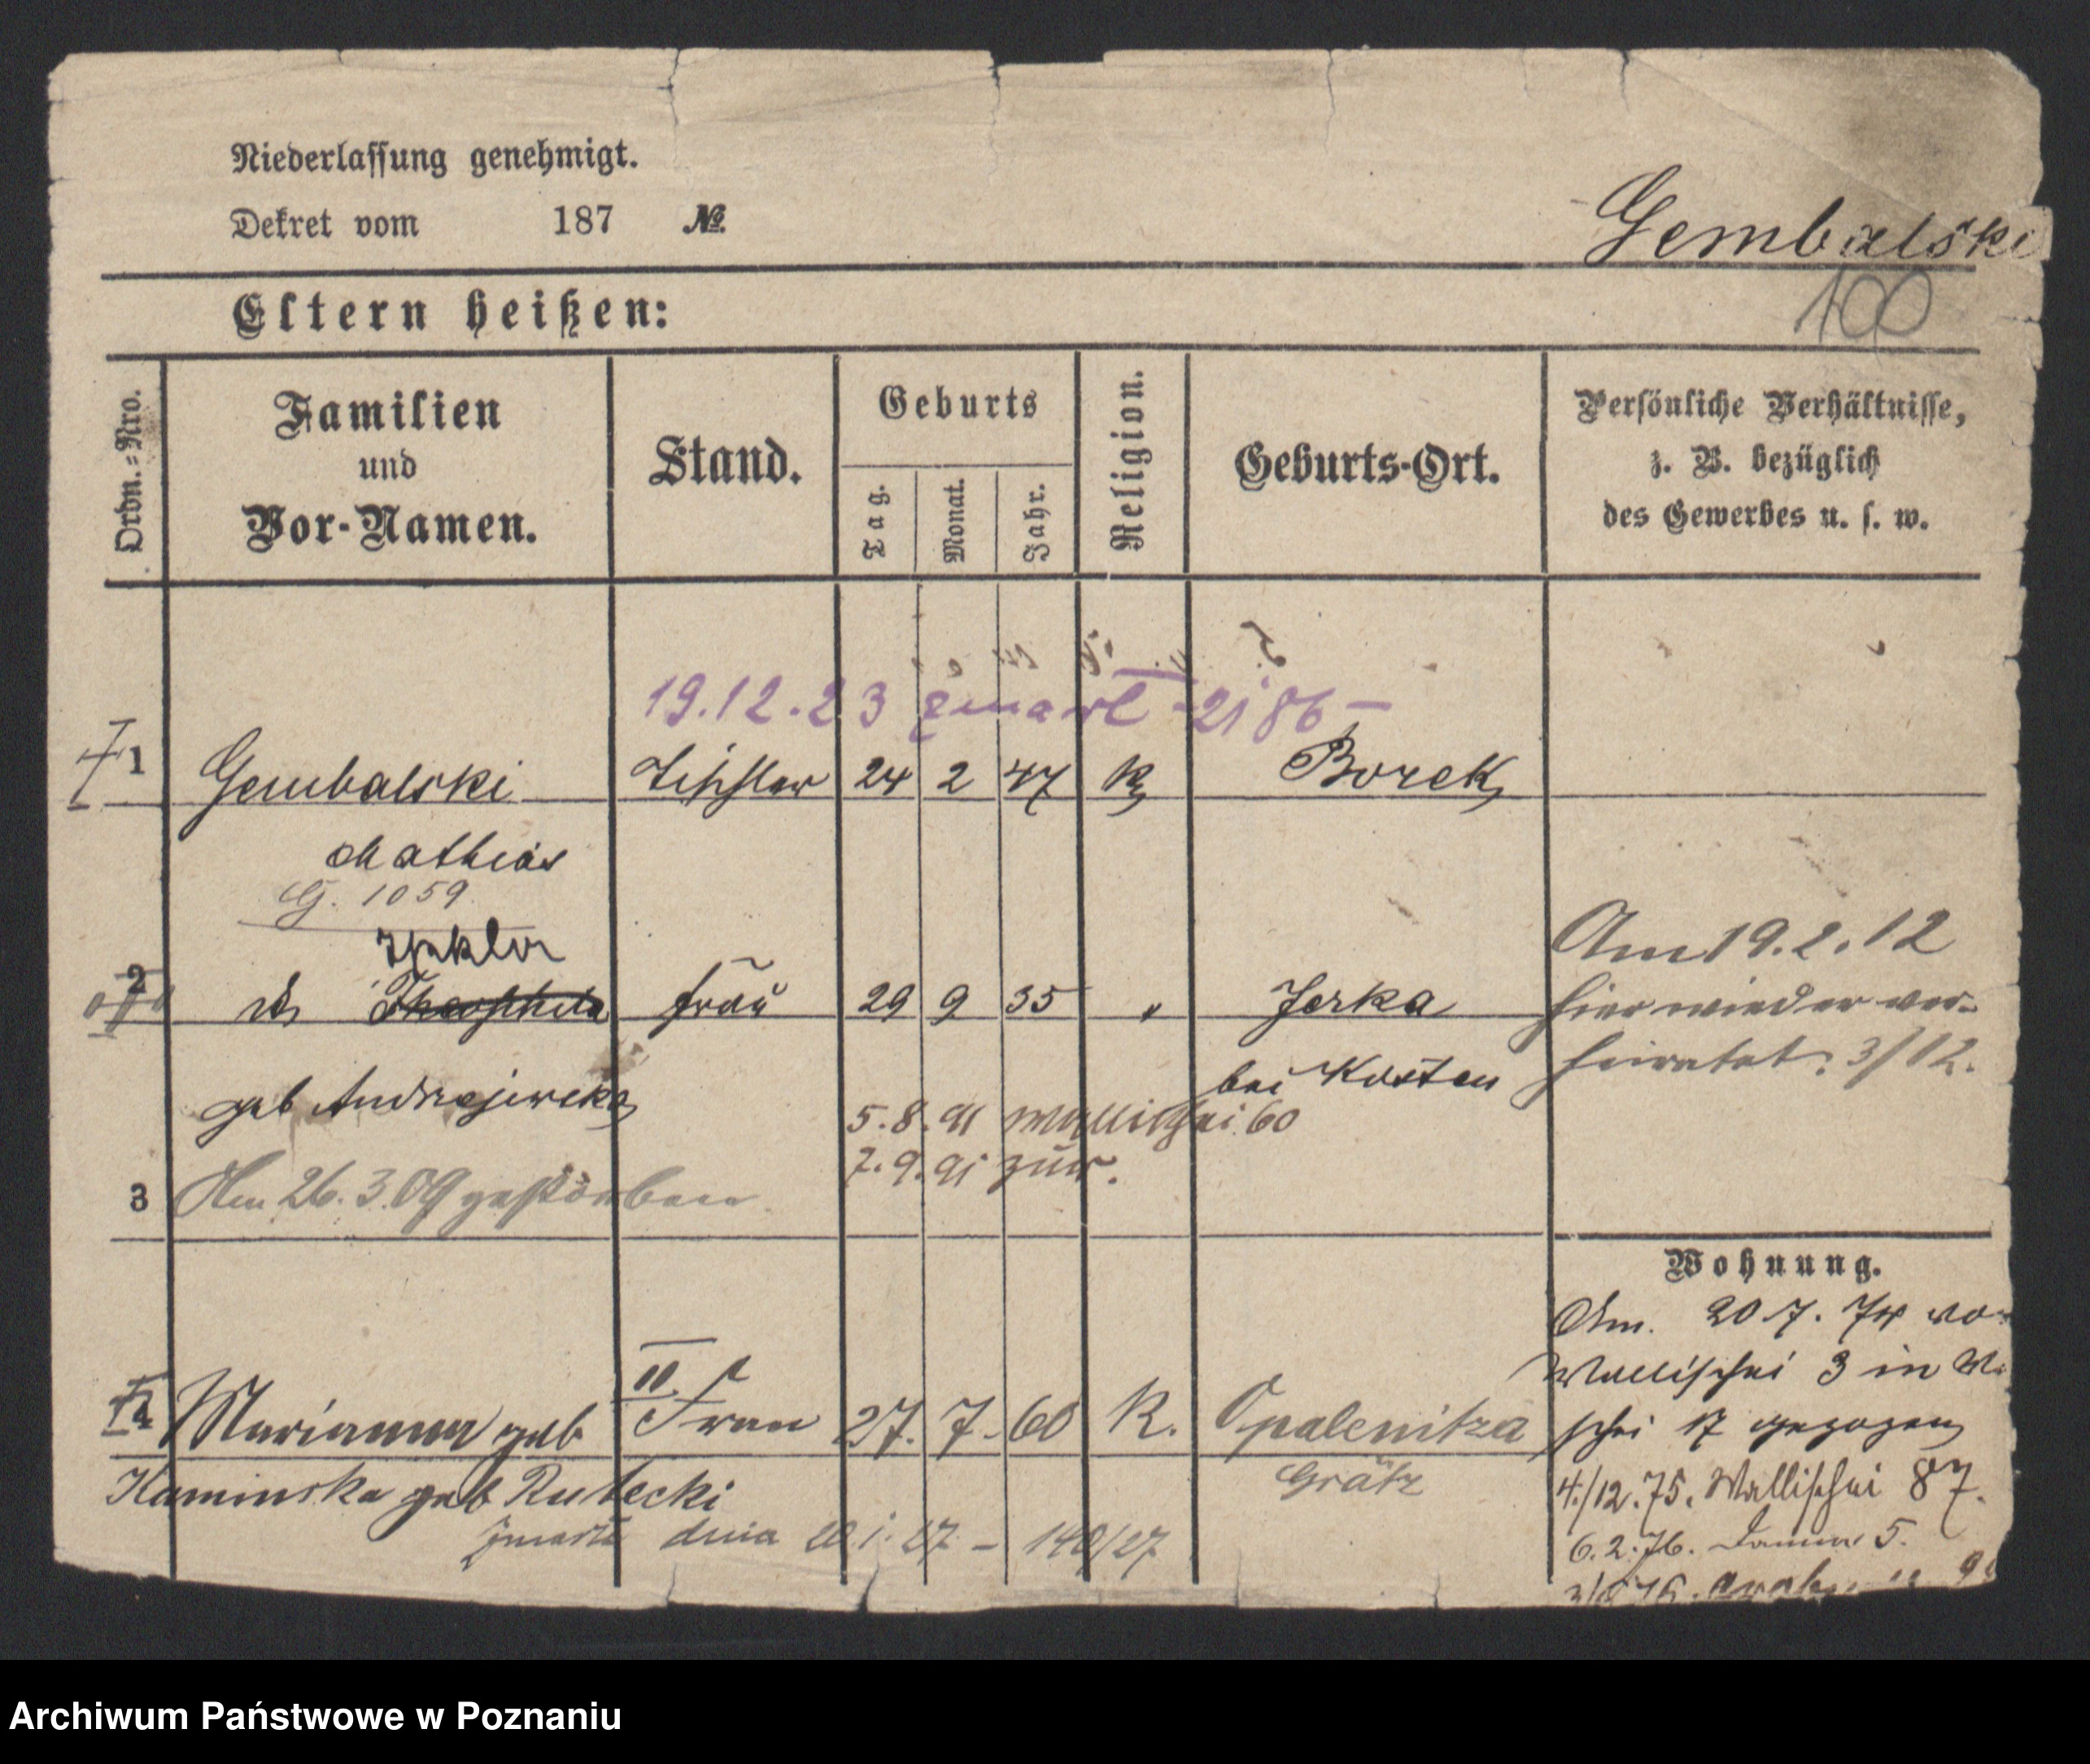 Niederlassung genehmigt.
Dekret vom 187 №
Gembalski
100
Eltern heißen:
Ordn.-Nro.
Familien
und
Vor-Namen.
Stand.
Geburts
Tag.
Monat.
Jahr.
Religion.
Geburts-Ort.
Persönliche Verhältnisse,
z. B. bezüglich
des Gewerbes u. s. w.
19.12.23 zmarł 2186 –
1 Gembalski Tischler 24 2 47 K Borek
Mathias
G. 1059
2 Theophila Frau 29 9 35 " Jerka
geb Andrzejewska
bei Kosten
Am 19.2.12
hier wieder ver-
heiratet. 3/12.
5.8.91 Wallischei 60
7.9.91 zur.
3 Am 26.3.09 gestorben
Wohnung.
Am. 20.7.74 von
Wallischei 3 in
schei 17 gezogen
4./12.75. Wallischei 87.
6.2.76. Damm 5.
II
Marianna geb Frau 27. 7. 60 K. Opalenitza
Grätz
Kaminska geb Rutecki
zmarła dnia 20.1.27 – 140/27